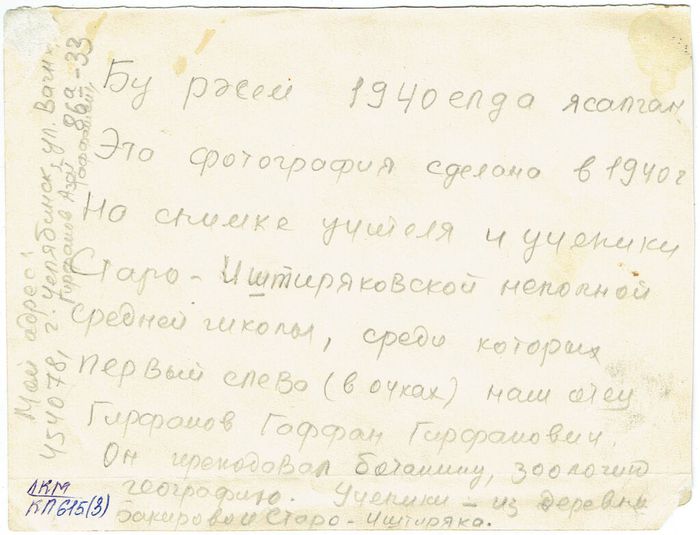 Бу рәсем 1940 елда ясалган
Это фотография сделана в 1940 г
На снимке учителя и ученики
Старо-Иштиряковской неполной
средней школы, среди которых
первый слева (в очках) наш отец
Гирфанов Гаффан Гирфанович.
Он преподавал ботанику, зоологию
географию. Ученики – из деревни
Закировой и Старо-Иштиряка.
Мой адрес:
454078, г. Челябинск, ул. Вагн
86а-33
Гирфанов
ЛКМ
КП615(3)